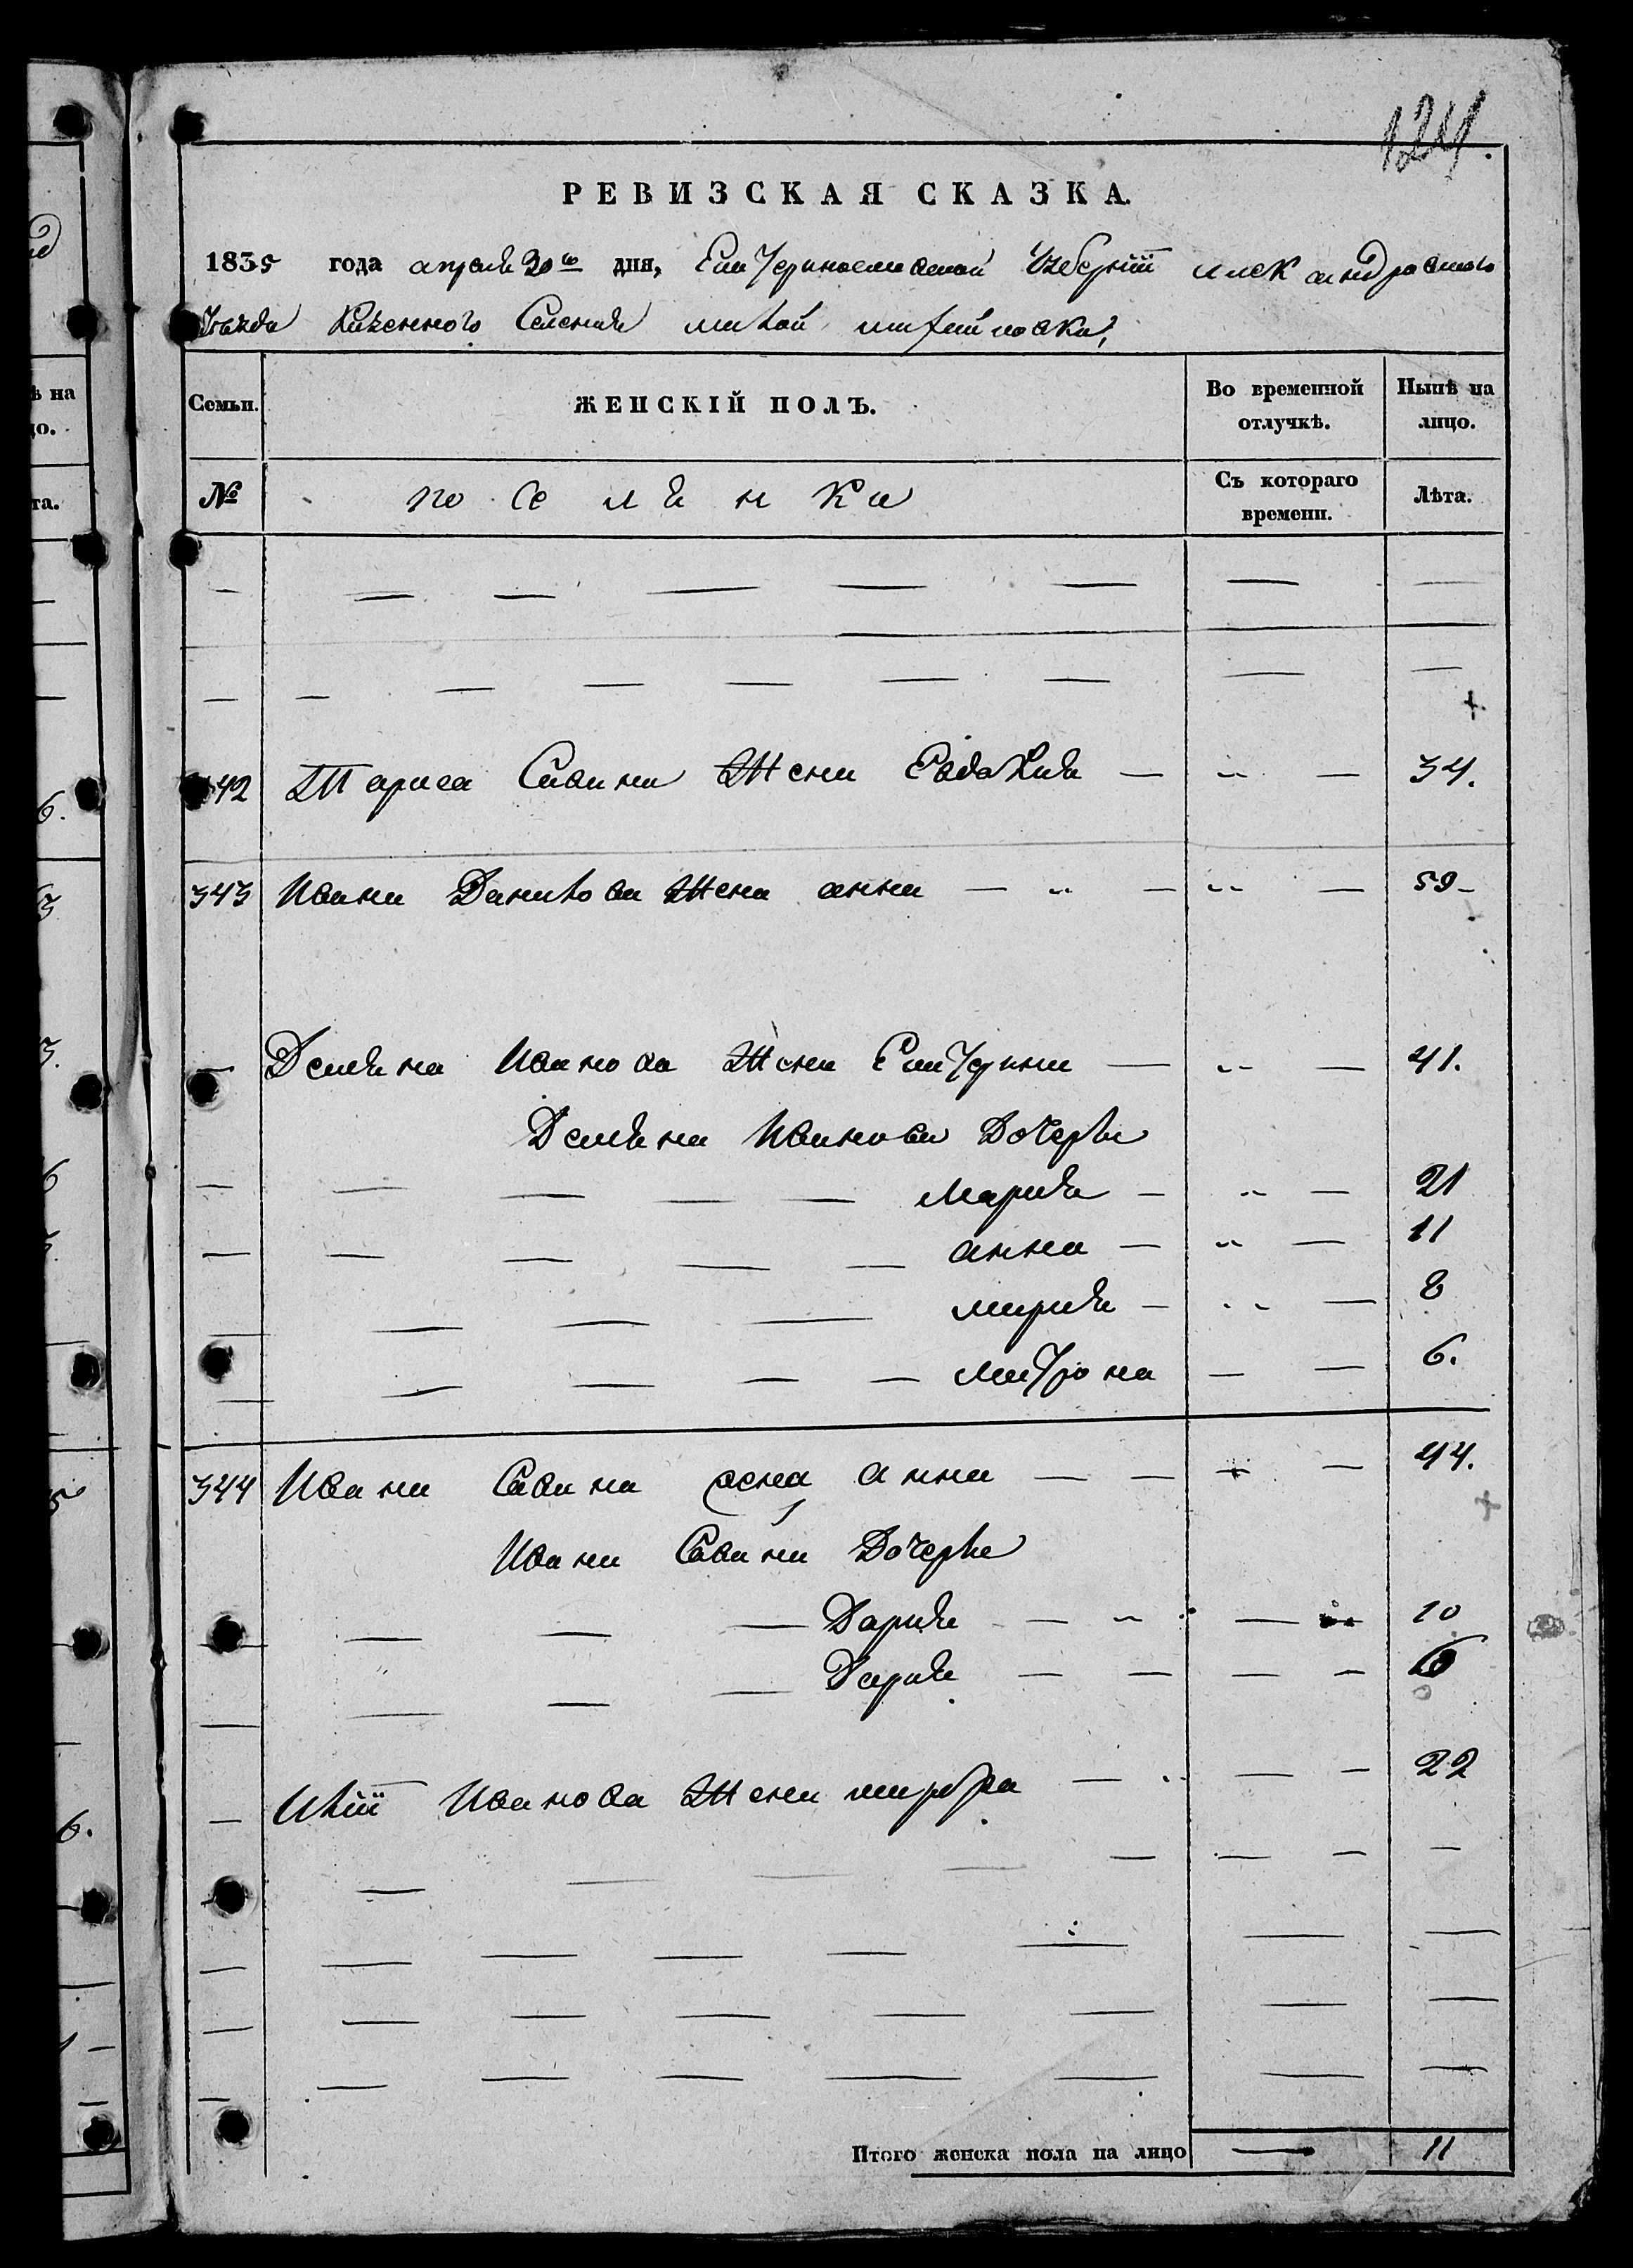 124.
РЕВИЗСКАЯ СКАЗКА.
1835 года апреля 30го дня, Екатеринославской Губернiи александровского
Уѣзда Казенного Селения малой михайловки,
Семьи. ЖЕНСКIЙ ПОЛЪ. Во временной отлучкѣ. Нынѣ на лицо.
№ поселянки Съ котораго времени. Лѣта.
342 Тараса Савина Жена Евдокия — „ — 34.
343 Ивана Данилова Жена анна — „ — „ — 59
— Демяна Иванова Жена Екатерина — „ — 41.
Демяна Иванова Дочери
— Мария — „ — 21
— анна — „ — 11
— мария — „ — 8
— матрона — — 6.
344 Ивана Савина жена анна — — „ — 44.
Ивана Савина Дочери
— Дария — „ — „ 10
— Дария — — — — 6
— Илii Иванова Жена марфа — „ — — 22
Итого женска пола на лицо — 11